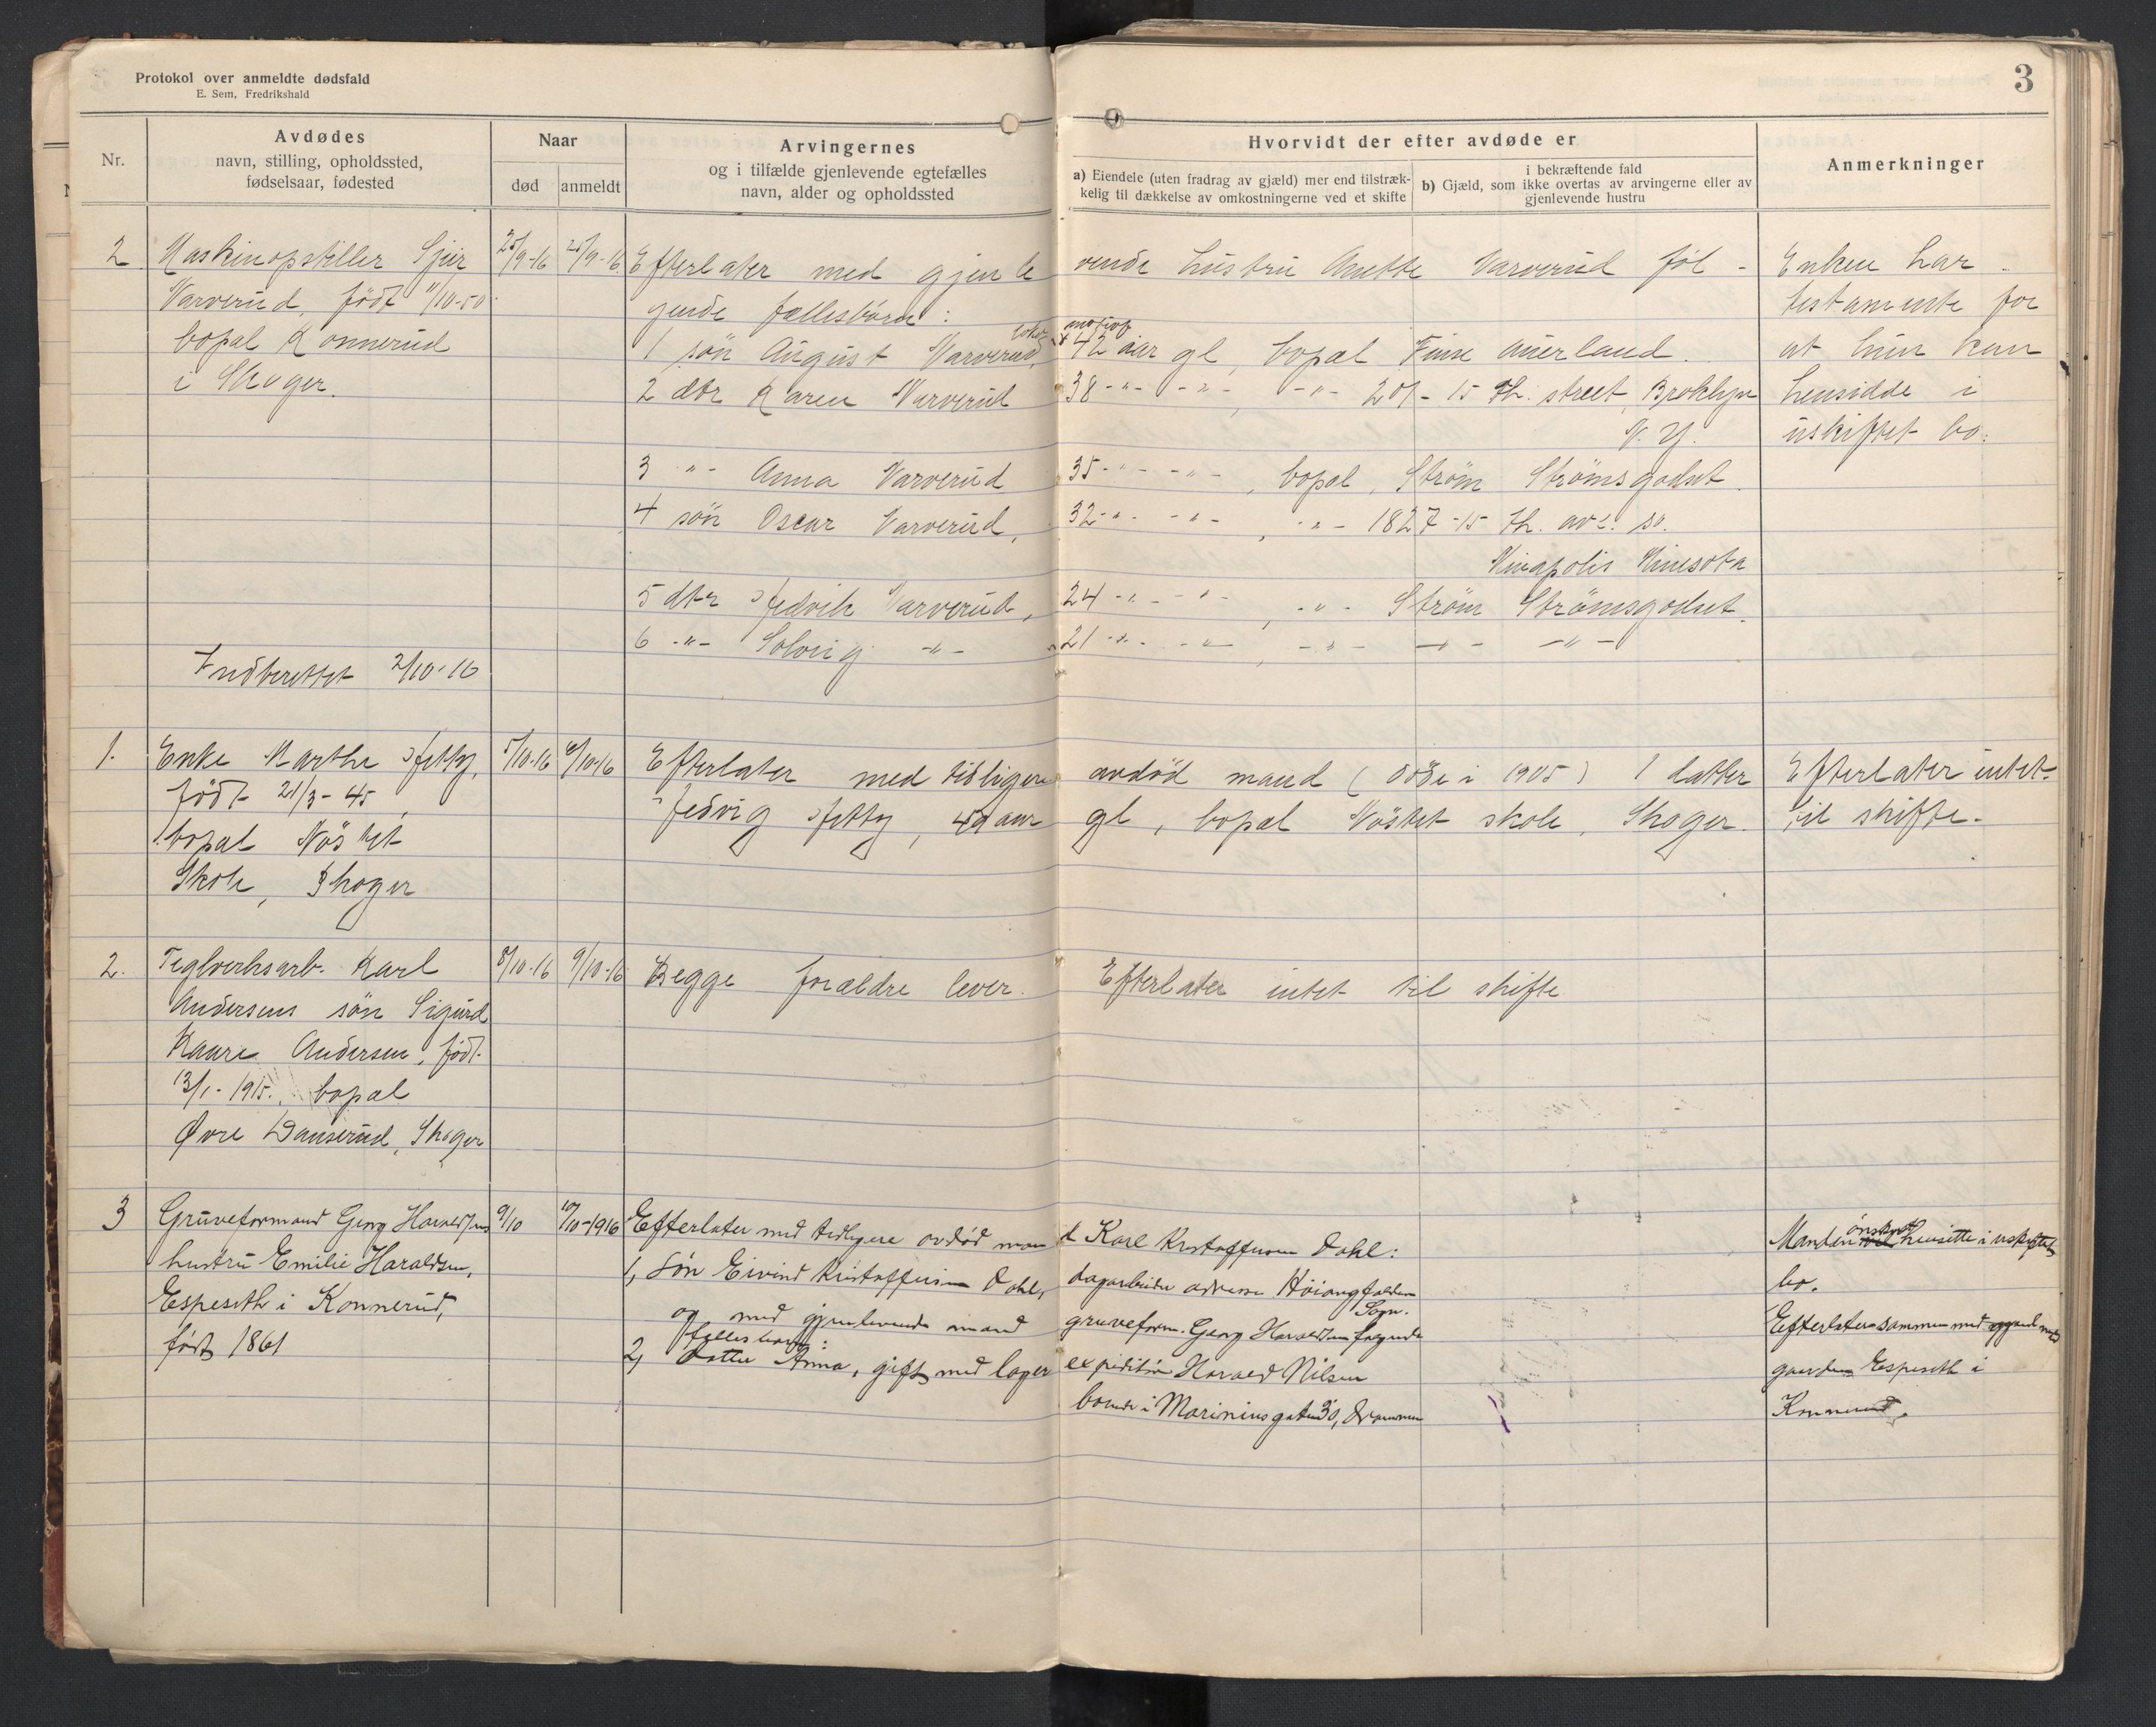 Protokol over anmeldte dødsfald
E. Sem, Fredrikshald
3
Nr.
Avdødes
navn, stilling, opholdssted,
fødselsaar, fødested
Naar
død anmeldt
Arvingernes
og i tilfælde gjenlevende egtefælles
navn, alder og opholdssted
Hvorvidt der efter avdøde er
a) Eiendele (uten fradrag av gjæld) mer end tilstræk-
kelig til dækkelse av omkostningerne ved et skifte
i bekræftende fald
b) Gjæld, som ikke overtas av arvingerne eller av
gjenlevende hustru
Anmerkninger
2. Maskinopstiller Sjur 25/9-16 25/9-16 Efterlater med gjenle vende hustru Anette Varverud føl - Enken har
Varverud, født 11/10-50 gende fællesbørn: testamente for
bopal Konnerud 1 søn August Varverud, loko motivf 42 aar gl, bopal Finse Aurland. at hun kan
i Skoger. 2 dtr Karen Varverud 38 -"- -"-, -"- 201 - 15 th. street, Broklyn hensidde i
N. Y. uskiftet bo.
3 -"- Anna Varverud 35 -"- -"-, bopal, Strøm Strømsgodset.
4 søn Oscar Varverud, 32 -"- -"-, -"- 1827 - 15 th. ave. so.
Minapolis Minesota
5 dtr Hedvik Varverud, 24 -"- -"-, -"- Strøm Strømsgodset.
6 -"- Solveig -"- 21 -"- -"-, -"- -"- -"-
Indberettet 2/10-16
1. Enke Marthe Hetty, 5/10-16 6/10-16 Efterlater med tidligere avdød mand (døde i 1905) 1 datter Efterlater intet
født 21/3-45, Hedvig Hetty, 49 aar gl, bopal Nøstet skole, Skoger. til skifte.
bopal Nøstet
Skole, Skoger
2. Teglverksarb. Karl 8/10-16 9/10-16 Begge forældre lever. Efterlater intet til skifte
Andersens søn Sigurd
Kaare Andersen, født
13/1-1915, bopal
Øvre Danserud, Skoger
3 Gruveformand Georg Haraldsens 9/10 10/10-1916 Efterlater med tidligere avdød man d Karl Kristoffersen Dahl: Manden ønsker hensitte i uskiftet
hustru Emilie Haraldsen, 1, søn Eivind Kristoffersen Dahl, dagarbeider adresse Høiangfalden bo.
Espeseth i Konnerud, Sogn.
født 1861 og med gjenlevende mand gruveform. Georg Haraldsen følgende Efterlater sammen med
fællesbarn:
2, datter Anna, gift med lager expeditør Harald Nilsen gaarden Espeseth i
boende i Mariniusgaten 30, Drammen Konnerud.